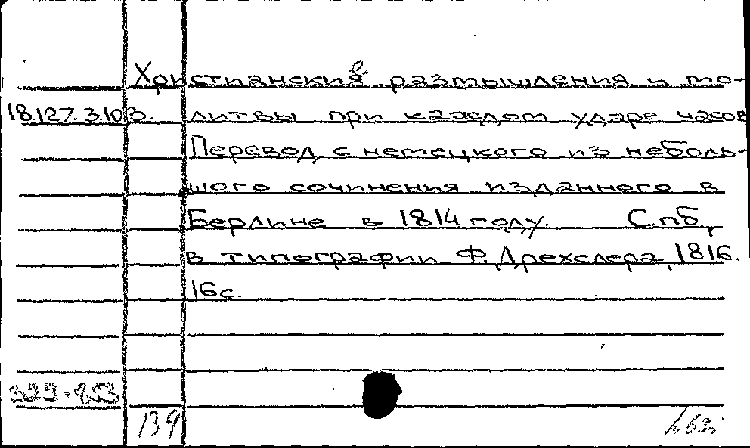 Христианские размышления и мо-
18.127.3.103. литвы при каждом ударе часов
Перевод с немецкого из неболь-
шого сочинения изданного в
Берлине в 1814 году. Спб,
в типографии Ф. Дрехслера, 1816.
16с.
139